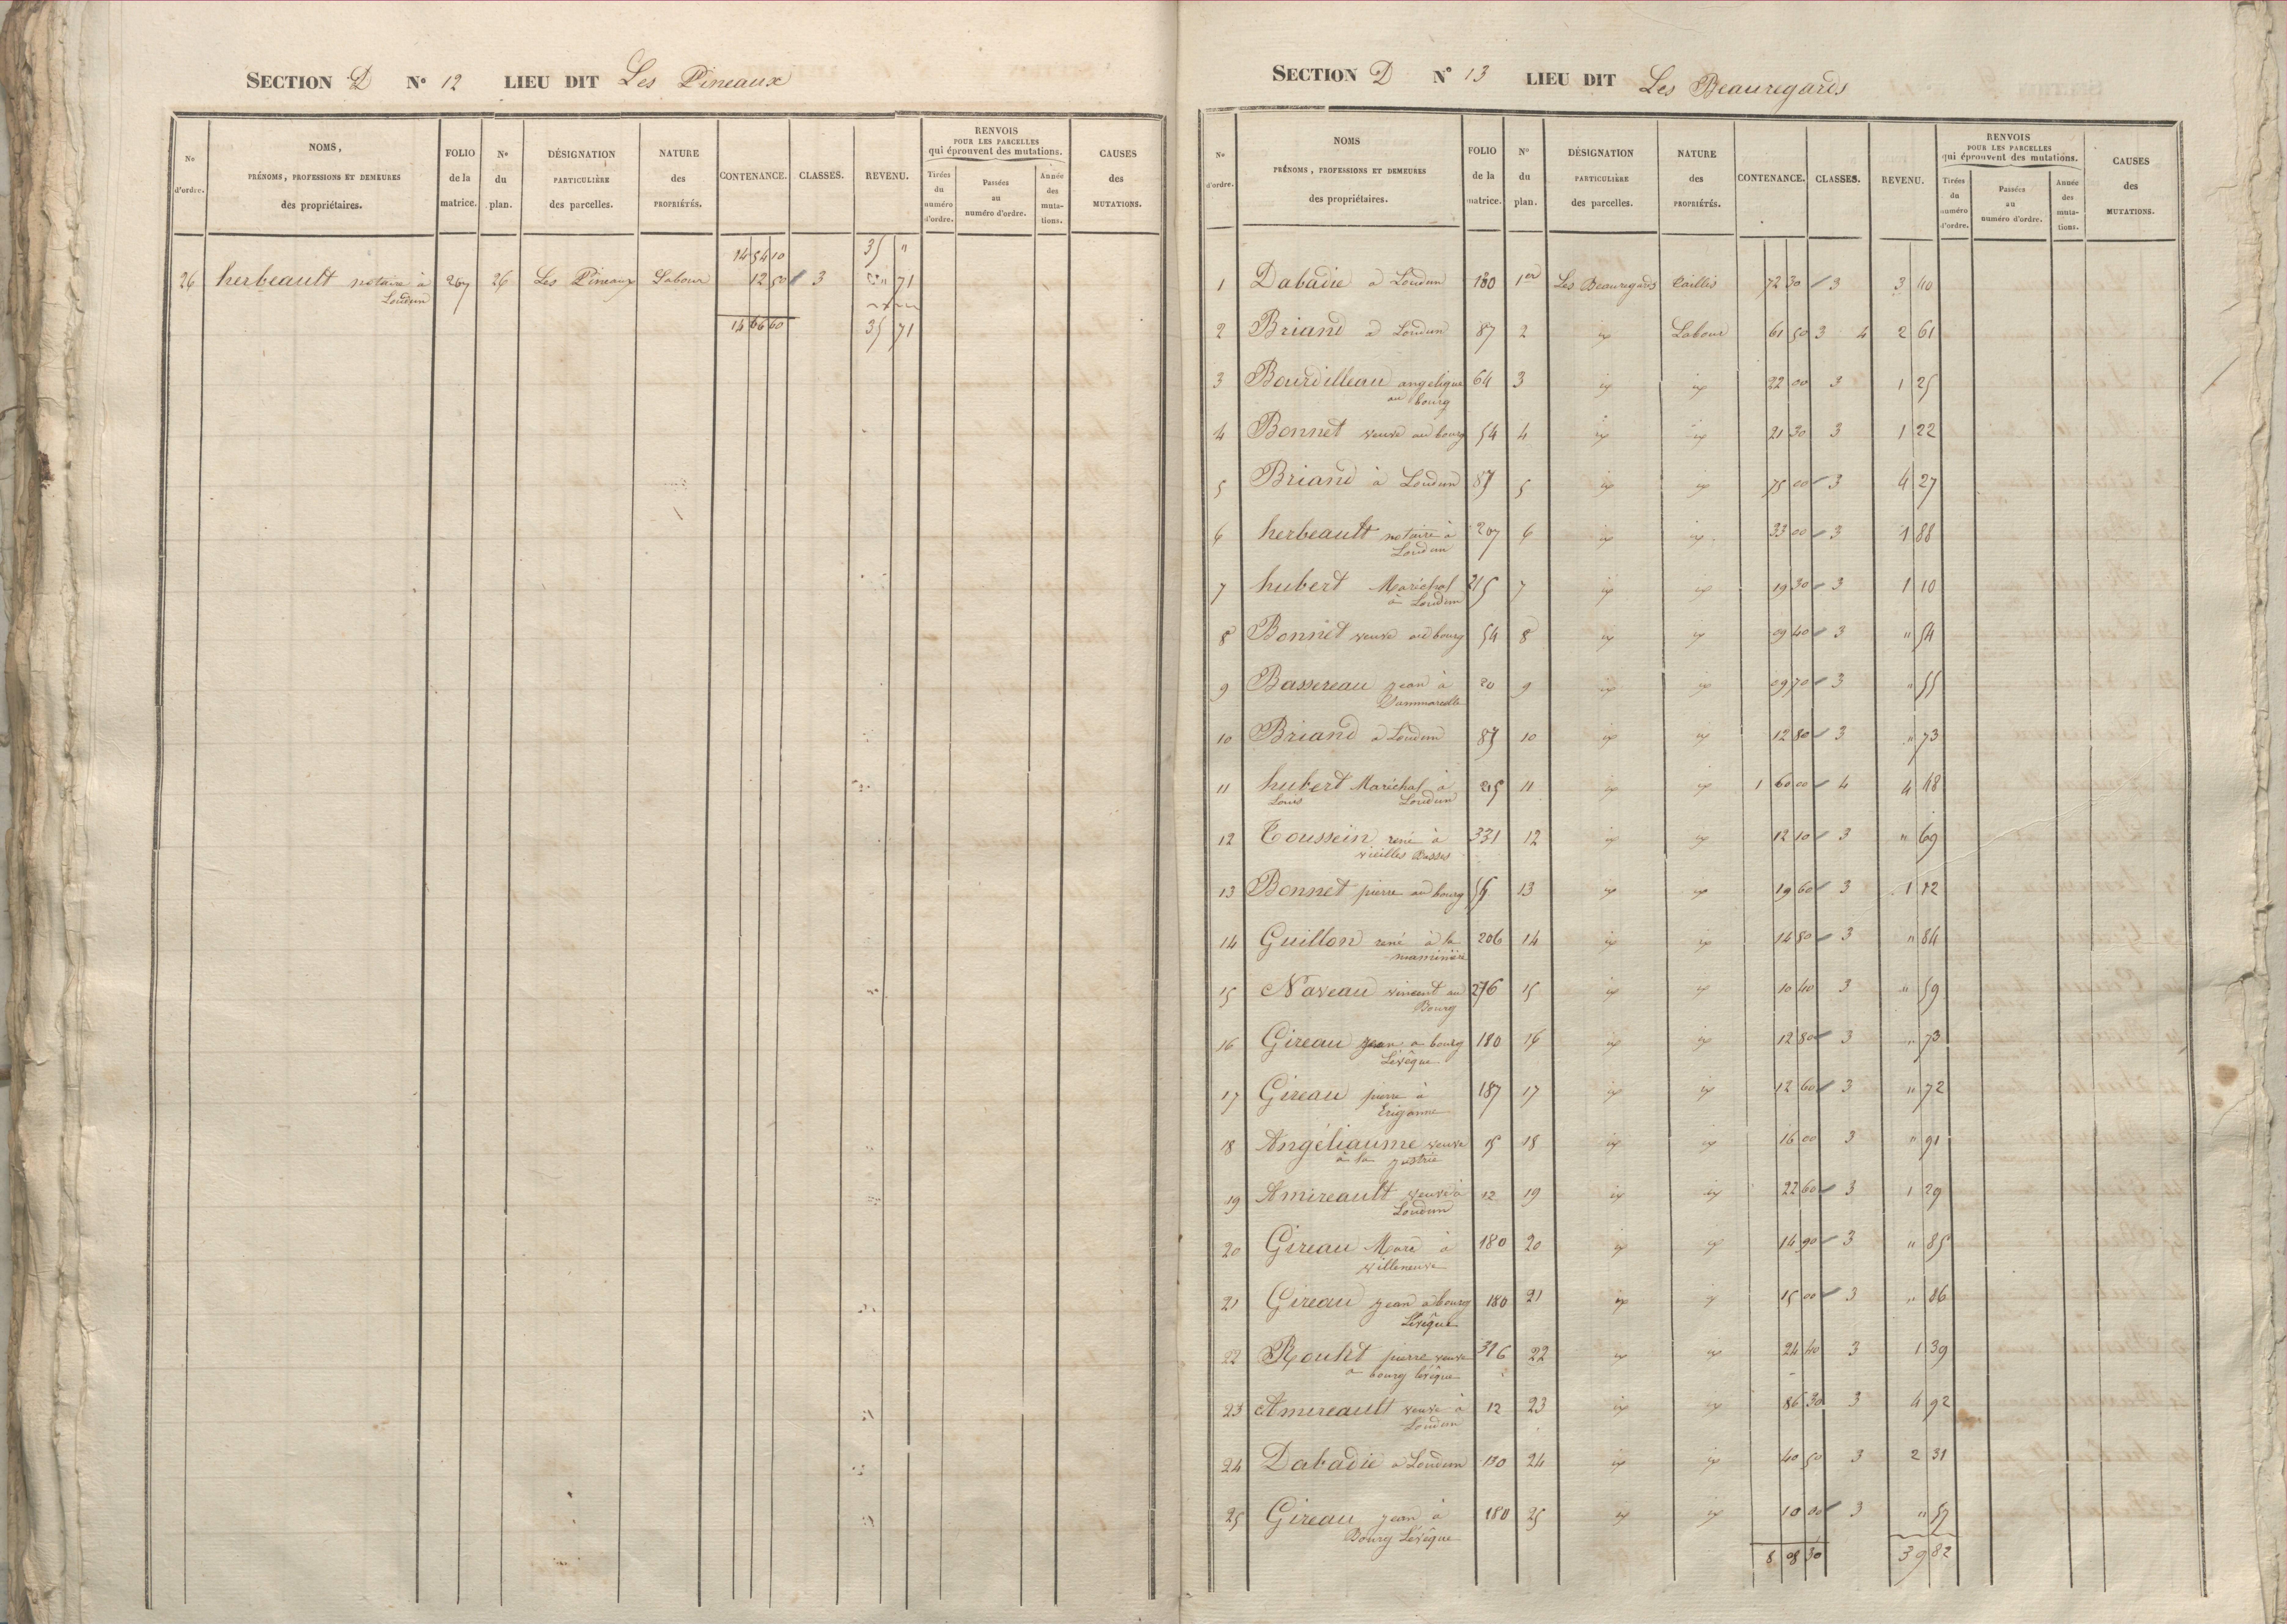 SECTION D N° 12 LIEU DIT Les Pineaux
N° d'ordre. NOMS, PRÉNOMS, PROFESSIONS ET DEMEURES des propriétaires. FOLIO de la matrice. N° du plan. DÉSIGNATION PARTICULIÈRE des parcelles. NATURE des PROPRIÉTÉS. CONTENANCE. CLASSES. REVENU. RENVOIS POUR LES PARCELLES qui éprouvent des mutations. Tirées du numéro d'ordre. Passées au numéro d'ordre. Année des mutations. CAUSES des MUTATIONS.
14 54 10 35 "
26 herbeault notaire à 207 26 Les Pineaux Labour 12 50 3 " 71
Loudun
14 66 60 35 71
SECTION D N° 13 LIEU DIT Les Beauregards
N° d'ordre. NOMS PRÉNOMS, PROFESSIONS ET DEMEURES des propriétaires. FOLIO de la matrice. N° du plan. DÉSIGNATION PARTICULIÈRE des parcelles. NATURE des PROPRIÉTÉS. CONTENANCE. CLASSES. REVENU. RENVOIS POUR LES PARCELLES qui éprouvent des mutations. Tirées du numéro d'ordre. Passées au numéro d'ordre. Année des mutations. CAUSES des MUTATIONS.
1 Dabadie a Loudun 130 1er Les Beauregards 72 30 3 3 40
2 Briand a Loudun 87 2 ip Labour 61 50 3 4 2 61
3 Bourdilleau angelique 64 3 ip ip 22 00 3 1 25
au bourg
4 Bonnet veuve au bourg 54 4 ip ip 21 30 3 1 22
5 Briand à Loudun 87 5 ip ip 75 00 3 4 27
6 herbeault notaire à 207 6 ip ip 33 00 3 1 88
Loudun
7 hubert Maréchal 215 7 ip ip 19 30 3 1 10
à Loudun
8 Bonnet veuve au bourg 54 8 ip ip 09 40 3 " 54
9 Bassereau jean à 20 9 ip ip 09 70 3 " 55
10 Briand a Loudun 87 10 ip ip 12 80 3 " 73
11 hubert Maréchal à 215 11 ip ip 1 60 00 4 4 48
Louis Loudun
12 Toussein rené à 331 12 ip ip 12 10 3 " 69
vieilles Basses
13 Bonnet pierre au bourg 13 ip ip 19 60 3 1 12
14 Guillon rené à la 206 14 ip ip 14 80 3 " 84
15 Naveau vincent au 276 15 ip ip 10 40 3 " 59
Bourg
16 Gireau jean a bourg 180 16 ip ip 12 80 3 " 73
Lévêque
17 Gireau pierre à 187 17 ip ip 12 60 3 " 72
Trigonne
18 Angéliaume veuve 15 18 ip ip 16 00 3 " 91
à la
19 Amireault veuve à 12 19 ip ip 22 60 3 1 29
Loudun
20 Gireau Marc à 180 20 ip ip 14 90 3 " 85
villeneuve
21 Gireau jean a bourg 180 21 ip ip 15 00 3 " 86
Lévêque
22 pierre veuve 316 22 ip ip 24 40 3 1 39
a bourg lévêque
23 Amireault veuve à 12 23 ip ip 86 30 3 4 92
Loudun
24 Dabadie a Loudun 130 24 ip ip 40 50 3 2 31
25 Gireau jean à 180 25 ip ip 10 00 3 " 57
Bourg Lévêque
8 08 30 39 82